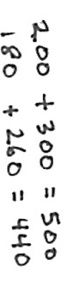 200 + 300 = 500
180 + 260 = 440